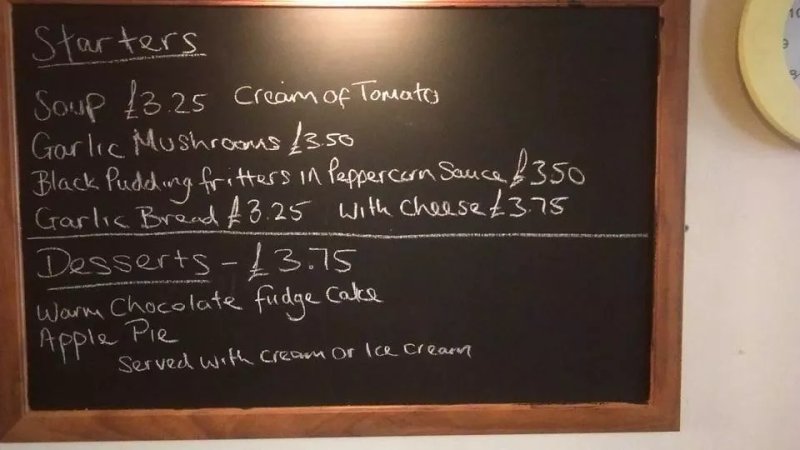 Starters
Soup £3.25 Cream of Tomato
Garlic Mushrooms £3.50
Black Pudding fritters in Peppercorn Sauce £3.50
Garlic Bread £3.25 with Cheese £3.75
Desserts - £3.75
Warm Chocolate fudge Cake
Apple Pie
Served with cream or Ice Cream
10
9
8